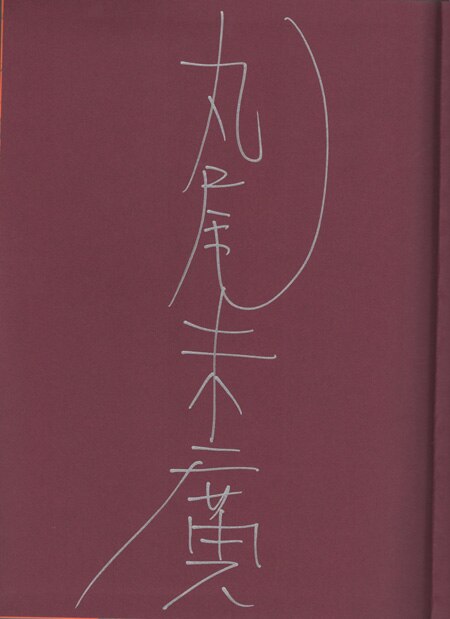 丸尾末廣